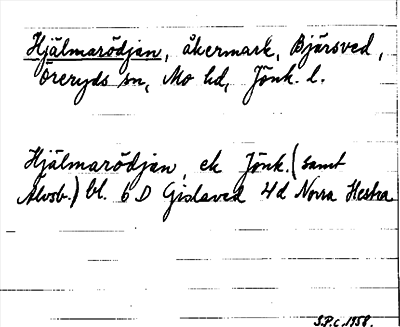 Hjälmarödjan, åkermark, Bjärsved,
Öreryds sn, Mo hd, Jönk. l.
Hjälmarödjan, ek Jönk. (samt
Älvsb.) bl. 6 D Gislaved 4 d Norra Hestra
S.P.c. 1958.